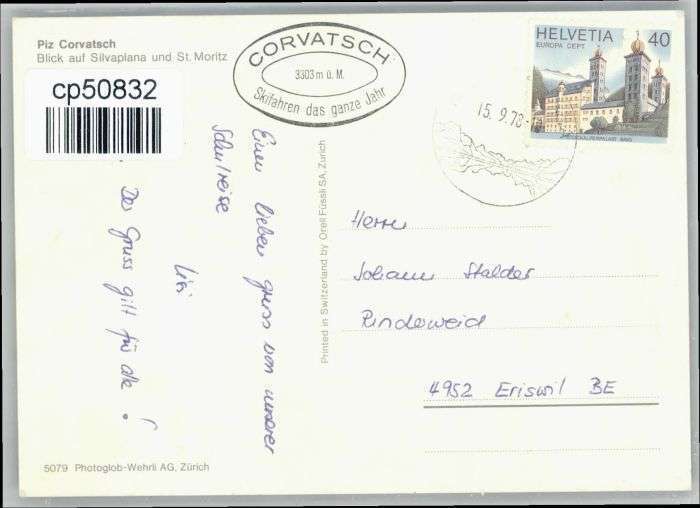 Piz Corvatsch
Blick auf Silvaplana und St. Moritz
CORVATSCH
3303 m ü. M.
Skifahren das ganze Jahr
HELVETIA 40
EUROPA CEPT
15. 9. 78
cp50832
Einen lieben gruss von unserer
Schulreise
Lisi
Der Gruss gilt für alle!
Printed in Switzerland by Orell Füssli SA, Zürich
Herrn
Johann Stalder
Rinderweid
4952 Eriswil BE
5079 Photoglob-Wehrli AG, Zürich